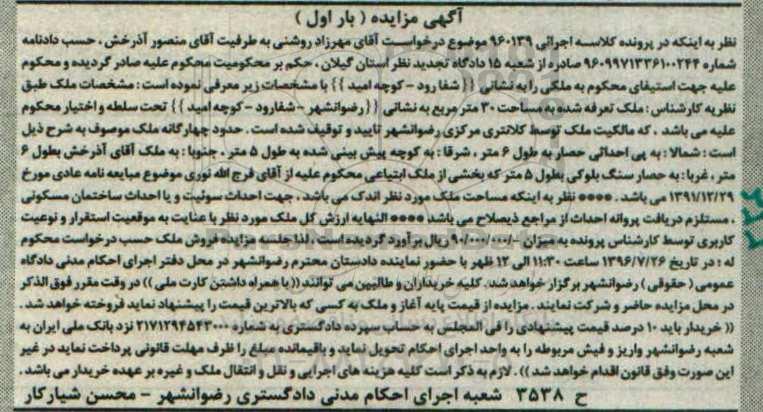 آگهی مزایده ( بار اول )
نظر به اینکه در پرونده کلاسه اجرائی ۹۶۰۱۳۹ موضوع درخواست آقای مهرزاد روشنی به طرفیت آقای منصور آذرخش ، حسب دادنامه
شماره ۹۶۰۹۹۷۱۳۳۶۱۰۰۲۴۴ صادره از شعبه ۱۵ دادگاه تجدید نظر استان گیلان ، حکم بر محکومیت محکوم علیه صادر گردیده و محکوم
علیه جهت استیفای محکوم به ملکی را به نشانی {{ شفا رود - کوچه امید }} با مشخصات زیر معرفی نموده است : مشخصات ملک طبق
نظریه کارشناس : ملک تعرفه شده به مساحت ۳۰ متر مربع به نشانی {{ رضوانشهر - شفارود - کوچه امید }} تحت سلطه و اختیار محکوم
علیه می باشد . که مالکیت ملک توسط کلانتری مرکزی رضوانشهر تایید و توقیف شده است . حدود چهارگانه ملک موصوف به شرح ذیل
است : شمالا : به پی احداثی حصار به طول ۶ متر ، شرقا : به کوچه پیش بینی شده به طول ۵ متر ، جنوبا : به ملک آقای آذرخش بطول ۶
متر ، غربا : به حصار سنگ بلوکی بطول ۵ متر که بخشی از ملک ابتیاعی محکوم علیه از آقای فرج الله نوری موضوع مبایعه نامه عادی مورخ
۱۳۹۱/۱۲/۲۹ می باشد . **** نظر به اینکه مساحت ملک مورد نظر اندک می باشد ، جهت احداث سوئیت و یا احداث ساختمان مسکونی
، مستلزم دریافت پروانه احداث از مراجع ذیصلاح می باشد **** النهایه ارزش کل ملک مورد نظر با عنایت به موقعیت استقرار و نوعیت
کاربری توسط کارشناس پرونده به میزان -/۹۰/۰۰۰/۰۰۰ ریال برآورد گردیده است ، لذا جلسه مزایده فروش ملک حسب درخواست محکوم
له : در تاریخ ۱۳۹۶/۷/۲۶ ساعت ۱۱:۳۰ الی ۱۲ ظهر با حضور نماینده دادستان محترم رضوانشهر در محل دفتر اجرای احکام مدنی دادگاه
عمومی ( حقوقی ) رضوانشهر برگزار خواهد شد . کلیه خریداران و طالبین می توانند (( با همراه داشتن کارت ملی )) در وقت مقرر فوق الذکر
در محل مزایده حاضر و شرکت نمایند . مزایده از قیمت پایه آغاز و ملک به کسی که بالاترین قیمت را پیشنهاد نماید فروخته خواهد شد .
(( خریدار باید ۱۰ درصد قیمت پیشنهادی را فی المجلس به حساب سپرده دادگستری به شماره ۲۱۷۱۲۹۴۵۴۳۰۰۰ نزد بانک ملی ایران به
شعبه رضوانشهر واریز و فیش مربوطه را به واحد اجرای احکام تحویل نماید و باقیمانده مبلغ را ظرف مهلت قانونی پرداخت نماید در غیر
این صورت وفق قانون اقدام خواهد شد )) . لازم به ذکر است کلیه هزینه های اجرایی و نقل و انتقال ملک و غیره بر عهده خریدار می باشد .
ح ۳۵۳۸ شعبه اجرای احکام مدنی دادگستری رضوانشهر - محسن شیارکار